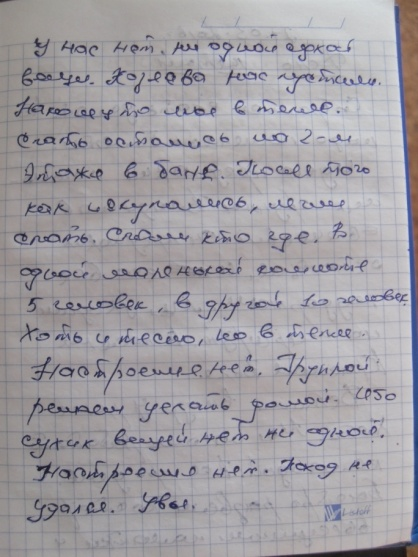 У нас нет ни одной сухой
вещи. Хозяева нас пустили.
Наконец то мы в тепле.
Спать остались на 2-м
Этаже в бане. После того
как искупались, легли
спать. Спали кто где. В
одной маленькой комнате
5 человек, в другой 10 человек.
Хоть и тесно, но в тепле.
Настроения нет. Группой
решаем уехать домой. Ибо
сухих вещей нет ни одной.
Настроения нет. Поход не
удался. Увы.